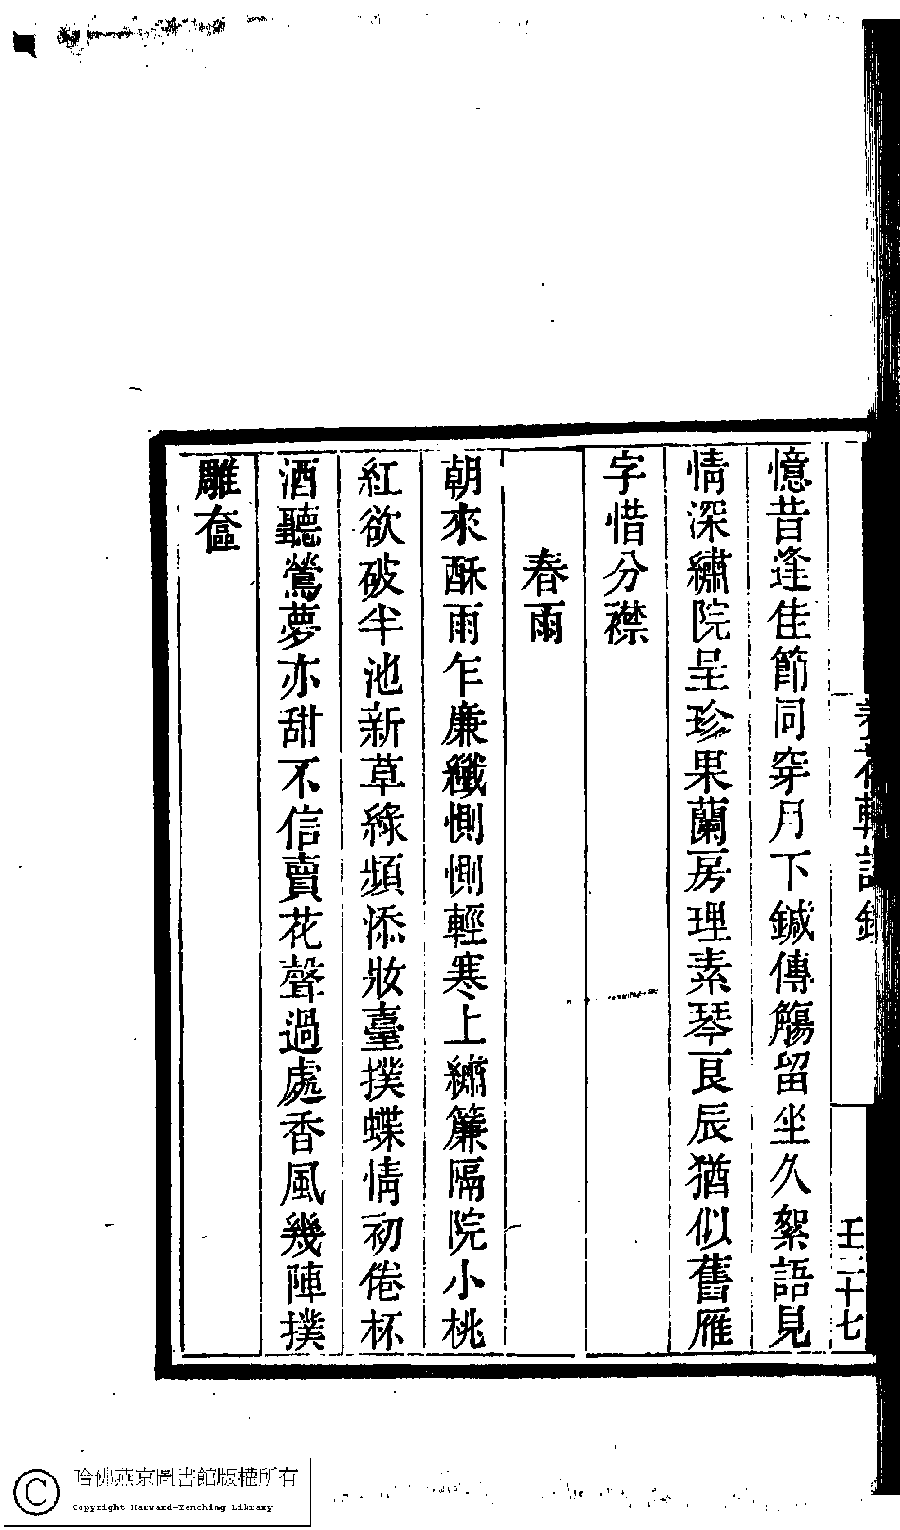 壬二十七
憶昔逢佳節同穿月下鍼傳觴留坐久絮語見
情深繡院呈珍果蘭房理素琴良辰猶似舊雁
字惜分襟
春雨
朝來酥雨乍廉纖惻惻輕寒上繡簾隔院小桃
紅欲破半池新草綠頻添妝臺撲蝶情初倦杯
酒聽鶯夢亦甜不信賣花聲過處香風幾陣撲
雕奩
哈佛燕京圖書館版權所有
Copyright Harvard-Yenching Library